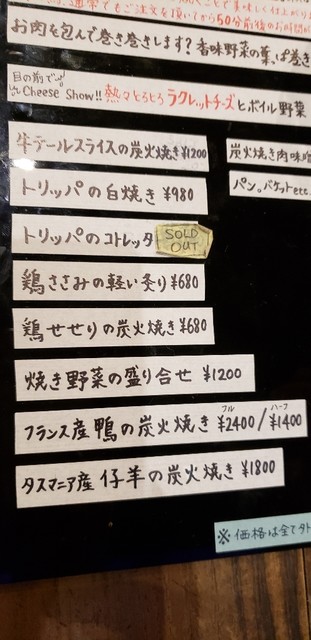 通常でもご注文を頂いてから50分前後のお時間が
お肉を包んで巻き巻きします?香味野菜の葉っぱ巻き
目の前で
Cheese Show!! 熱々とろとろ ラクレットチーズとボイル野菜
牛テールスライスの炭火焼き ¥1200
炭火焼き肉味噌
トリッパの白焼き ¥980
パン。バケットetc.
トリッパのコトレッタ SOLD OUT
鶏ささみの軽い炙り ¥680
鶏せせりの炭火焼き ¥680
焼き野菜の盛り合せ ¥1200
フランス産 鴨の炭火焼き フル ¥2400 / ハーフ ¥1400
タスマニア産 仔羊の炭火焼き ¥1800
※価格は全て